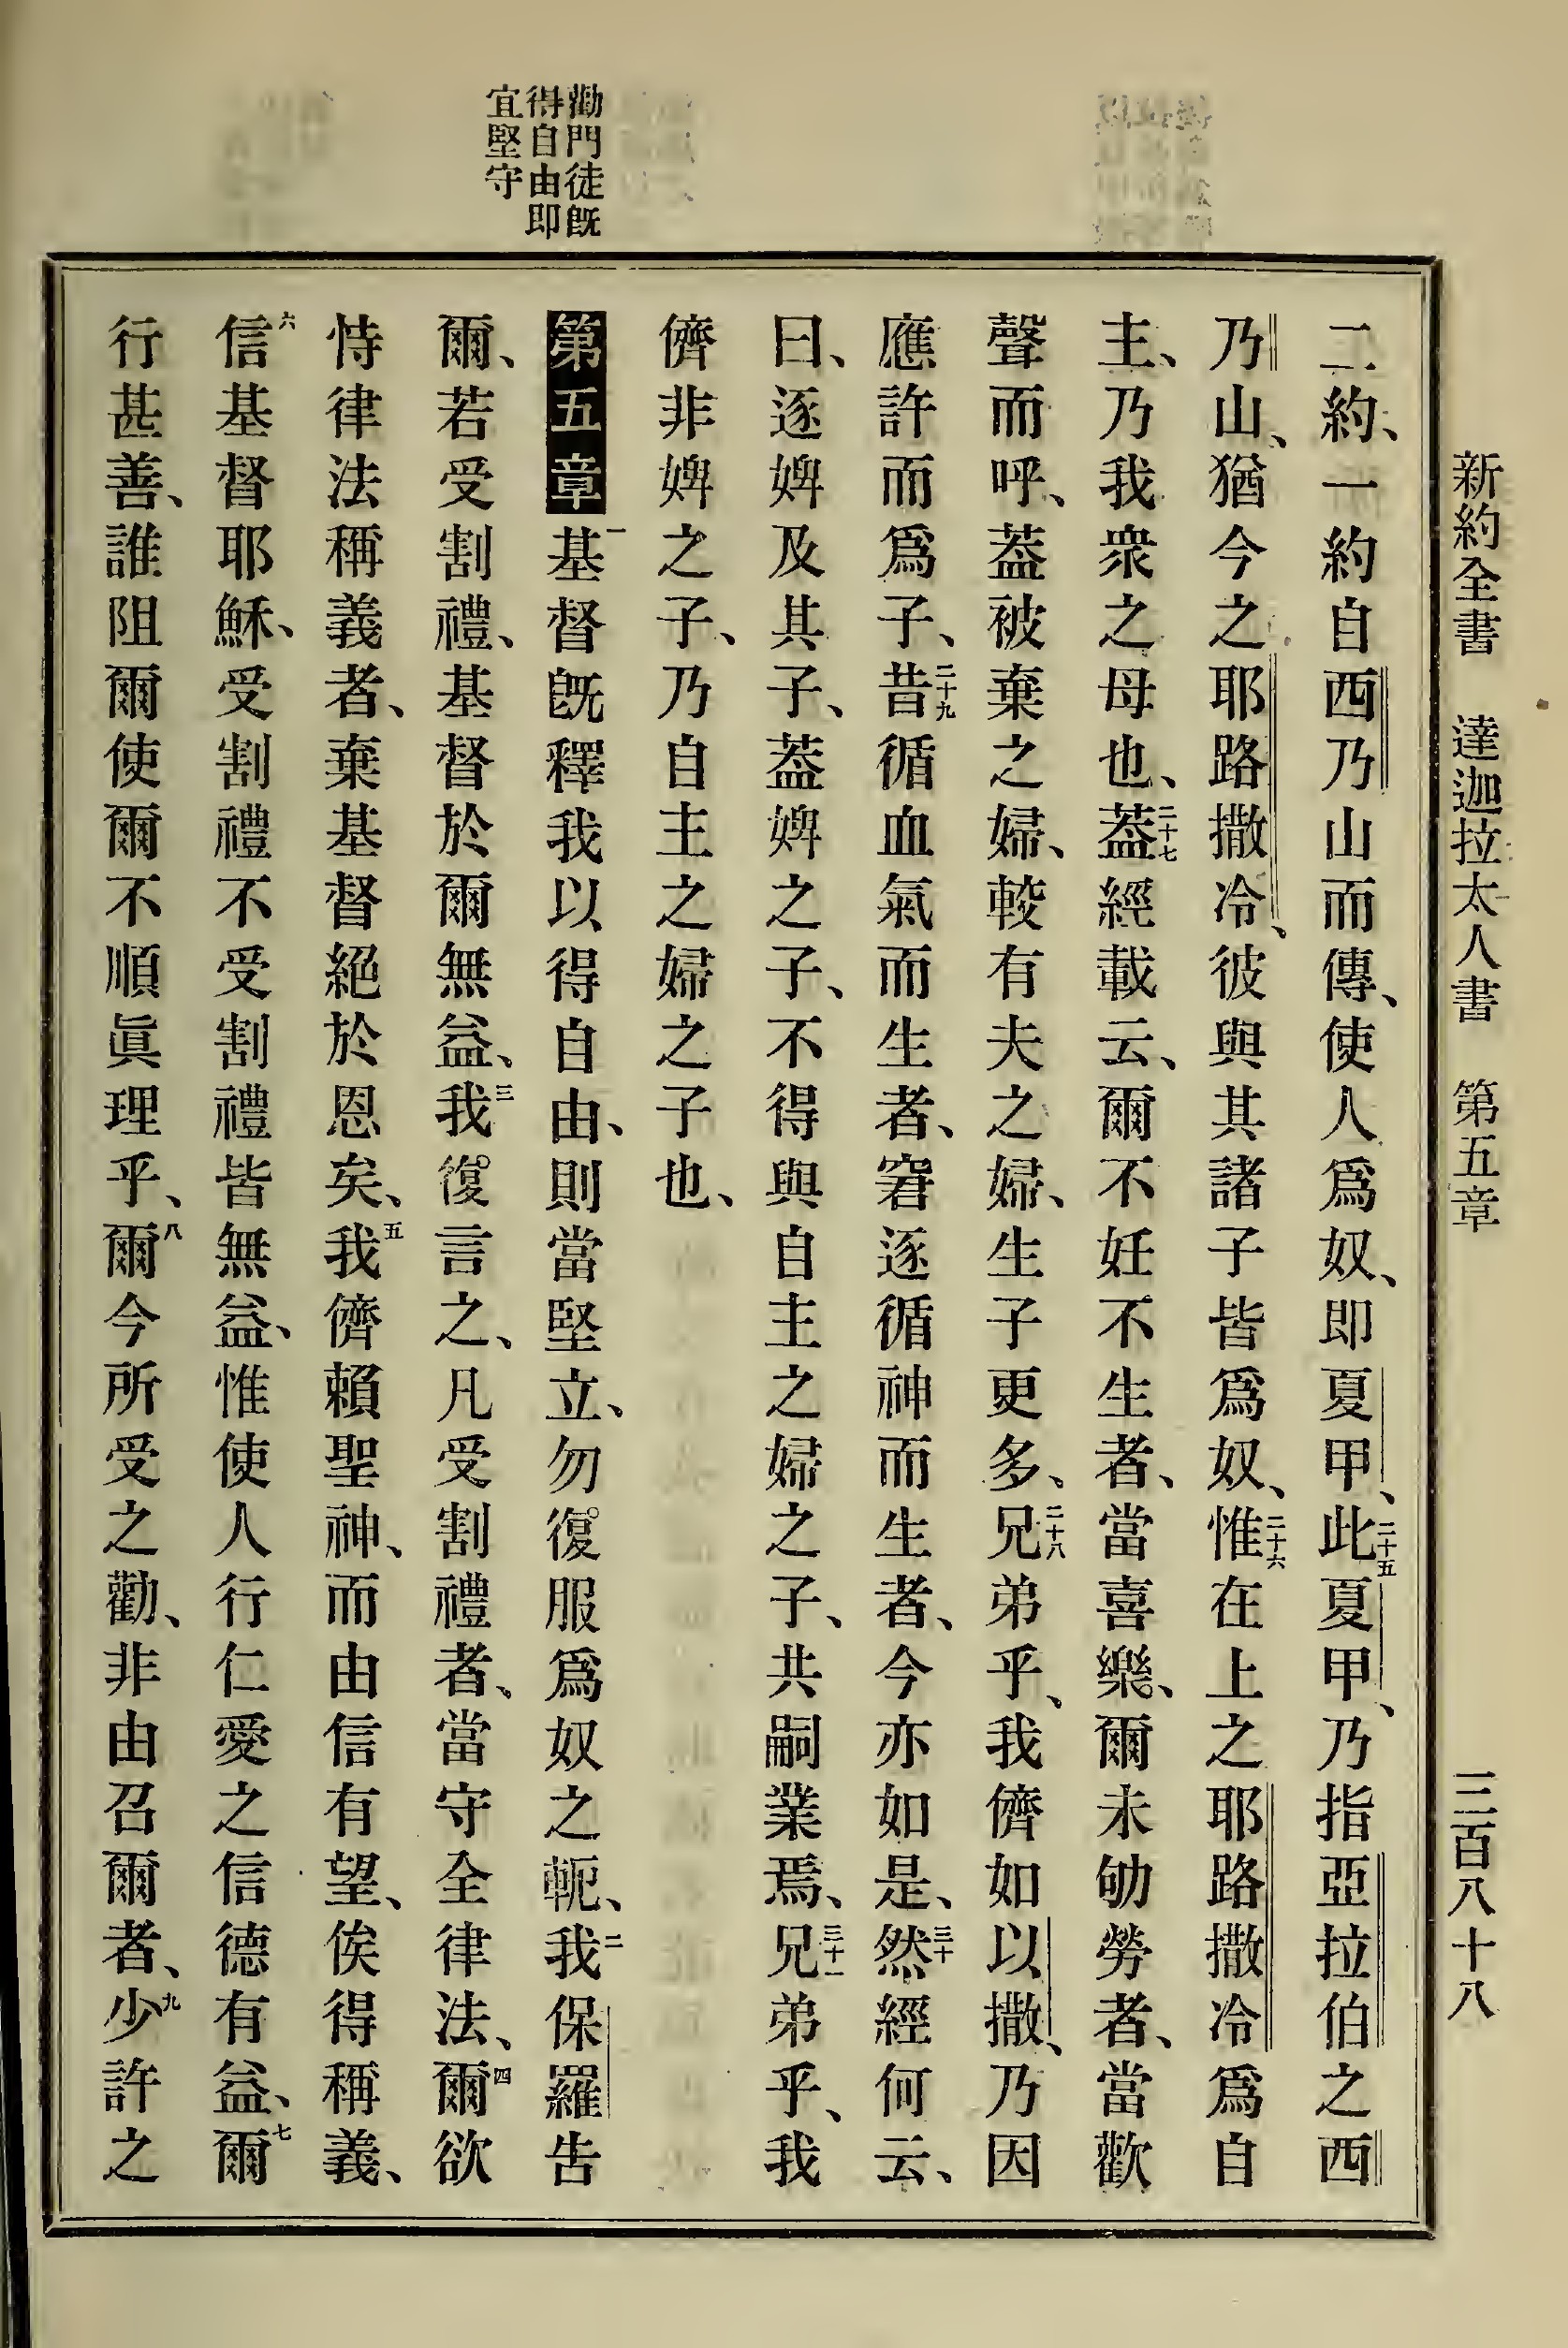 新約全書 達迦拉太人書 第五章 三百八十八
二約、一約自西乃山而傳、使人爲奴、即夏甲、二十五此夏甲、乃指亞拉伯之西
乃山、猶今之耶路撒冷、彼與其諸子皆爲奴、二十六惟在上之耶路撒冷爲自
主、乃我衆之母也、二十七葢經載云、爾不妊不生者、當喜樂、爾未劬勞者、當歡
聲而呼、葢被棄之婦、較有夫之婦、生子更多、二十八兄弟乎、我儕如以撒、乃因
應許而爲子、二十九昔循血氣而生者、窘逐循神而生者、今亦如是、三十然經何云、
曰、逐婢及其子、葢婢之子、不得與自主之婦之子、共嗣業焉、三十一兄弟乎、我
儕非婢之子、乃自主之婦之子也、
勸門徒旣
得自由即
宜堅守
第五章 一基督旣釋我以得自由、則當堅立、勿復服爲奴之軛、二我保羅告
爾、若受割禮、基督於爾無益、三我復言之、凡受割禮者、當守全律法、四爾欲
恃律法稱義者、棄基督絕於恩矣、五我儕賴聖神、而由信有望、俟得稱義、
六信基督耶穌、受割禮不受割禮皆無益、惟使人行仁愛之信德有益、七爾
行甚善、誰阻爾使爾不順眞理乎、八爾今所受之勸、非由召爾者、九少許之